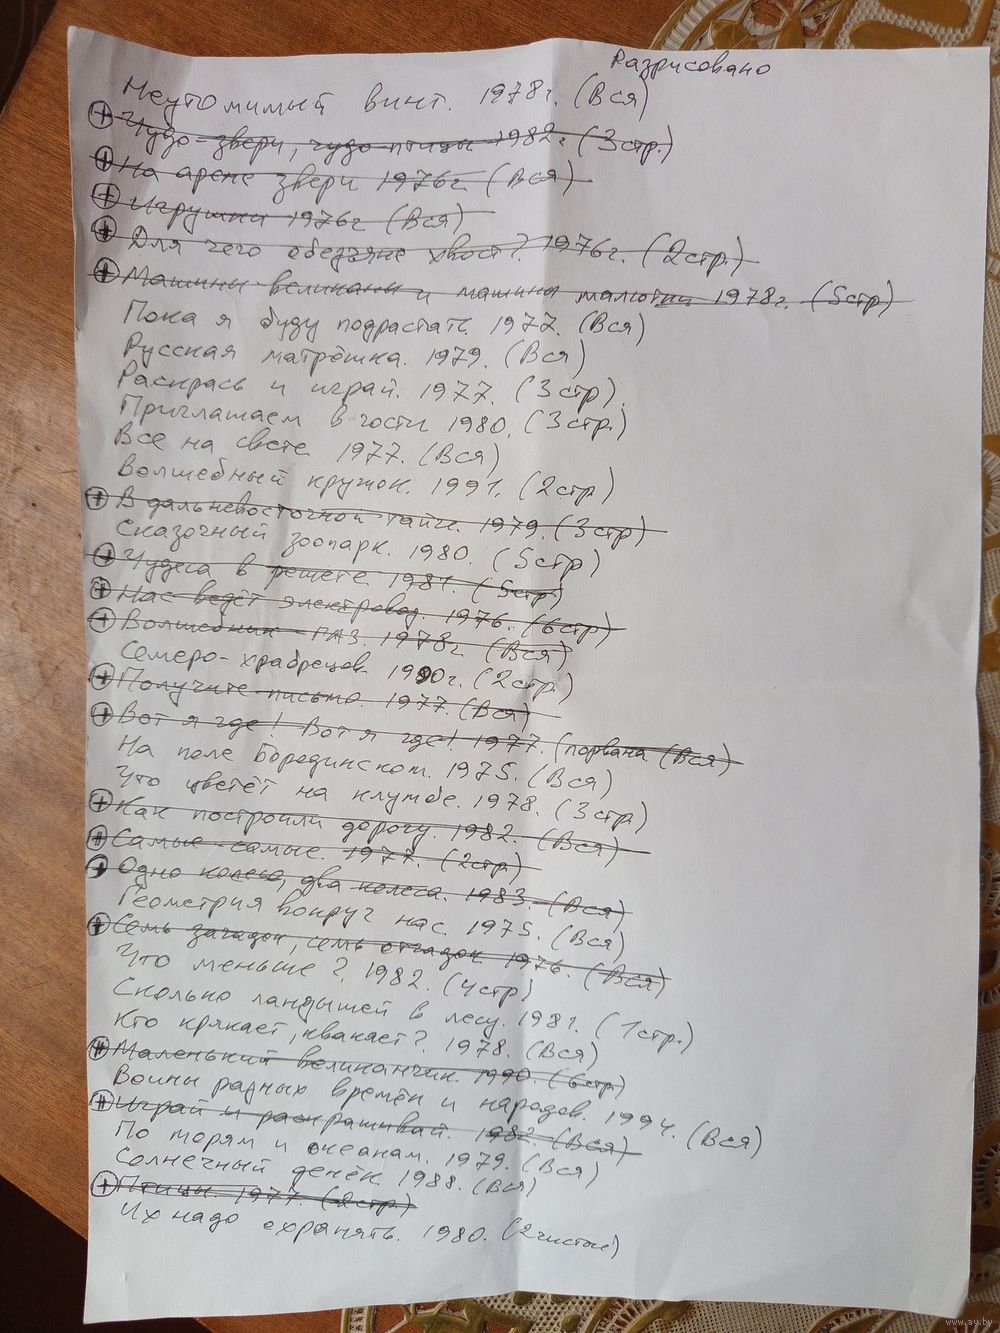 Разрисовано
Неутомимый винт. 1978г. (Вся)
Чудо-звери, чудо-птицы 1982г. (3стр.)
На арене звери 1976г (Вся)
Игрушки 1976г (Вся)
Для чего обезьяне хвост? 1976г. (2стр.)
Машины-великаны и машины малютки 1978г. (5стр)
Пока я буду подрастать. 1977. (Вся)
Русская матрёшка. 1979. (Вся)
Раскрась и играй. 1977. (3стр).
Приглашаем в гости 1980. (3стр.)
Все на свете 1977. (Вся)
Волшебный кружок. 1991. (2стр)
В дальневосточной тайге. 1979. (3стр)
Сказочный зоопарк. 1980. (5стр)
Чудеса в решете. 1981. (5стр)
Нас ведёт электровоз. 1976. (6стр)
Волшебник-ГАЗ. 1978г (Вся)
Семеро-храбрецов. 1990г. (2стр.)
Получите письмо. 1977. (Вся)
Вот я где! Вот я где! 1977. (порвана (Вся)
На поле Бородинском. 1975. (Вся)
Что цветёт на клумбе. 1978. (3стр)
Как построили дорогу. 1982. (Вся)
Самые-самые. 1977. (2стр)
Одно колесо, два колеса. 1983. (Вся)
Геометрия вокруг нас. 1975. (Вся)
Семь загадок, семь отгадок 1976. (Вся)
Что меньше? 1982. (4стр)
Сколько ландышей в лесу. 1981. (1стр.)
Кто крякает, квакает? 1978. (Вся)
Маленький великанчик. 1990. (6стр)
Воины разных времён и народов. 1994. (Вся)
Играй и раскрашивай. 1982. (Вся)
По морям и океанам. 1979. (Вся)
Солнечный денёк. 1988. (Вся)
Птицы. 1977. (2стр)
Их надо охранять. 1980. (2чистые)
www.ay.by